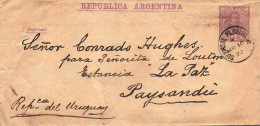 REPUBLICA ARGENTINA
Señor Conrado Hughes,
para Señorita de
Estancia La Paz
Paysandú
Repca del Uruguay